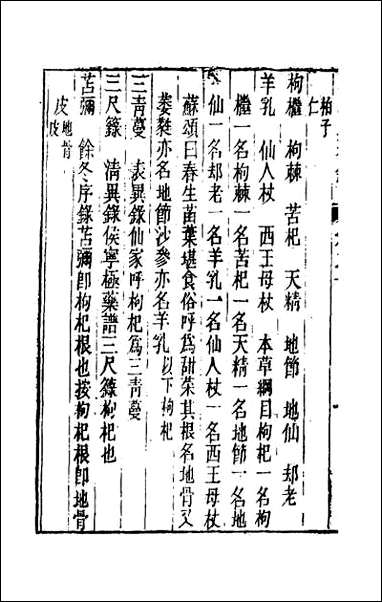 柏子
仁
枸檵　枸棘　苦杞　天精　地節　地仙　却老
羊乳　仙人杖　西王母杖　本草綱目枸杞一名枸
檵一名枸棘一名苦杞一名天精一名地節一名地
仙一名却老一名羊乳一名仙人杖一名西王母杖
蘇頌曰春生苗葉堪食俗呼為甜菜其根名地骨又
萎蕤亦名地節沙參亦名羊乳以下枸杞
三青蔓　表異錄仙家呼枸杞為三青蔓
三尺籙　清異錄侯寧極藥譜三尺籙枸杞也
苫彌　餘冬序錄苫彌卽枸杞根也按枸杞根卽地骨
皮地骨
皮